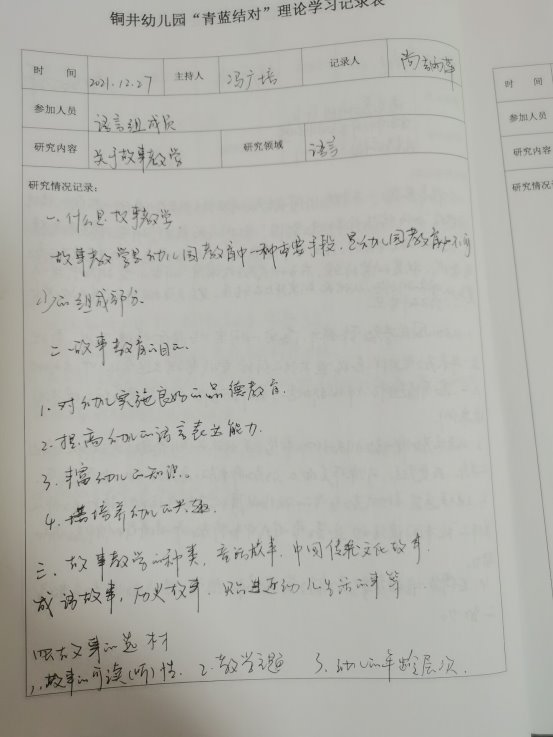 铜井幼儿园“青蓝结对”理论学习记录表
时 间 2021.12.27 主持人 冯广培 记录人
参加人员 语言组成员
研究内容 关于故事教学 研究领域 语言
研究情况记录:
一、什么是故事教学
故事教学是幼儿园教育中一种重要手段,是幼儿园教育中不可
少的组成部分.
二、故事教育的目的.
1. 对幼儿实施良好的品德教育.
2. 提高幼儿的语言表达能力.
3. 丰富幼儿的知识。
4. 培养幼儿的兴趣.
三、故事教学的种类,音乐故事,中国传统文化故事.
成语故事,历史故事 贴近幼儿生活的事等
四大故事的选材
1. 故事的可读(听)性. 2. 教学主题 3. 幼儿的年龄层次.
时 间
参加人员
研究内容
研究情况